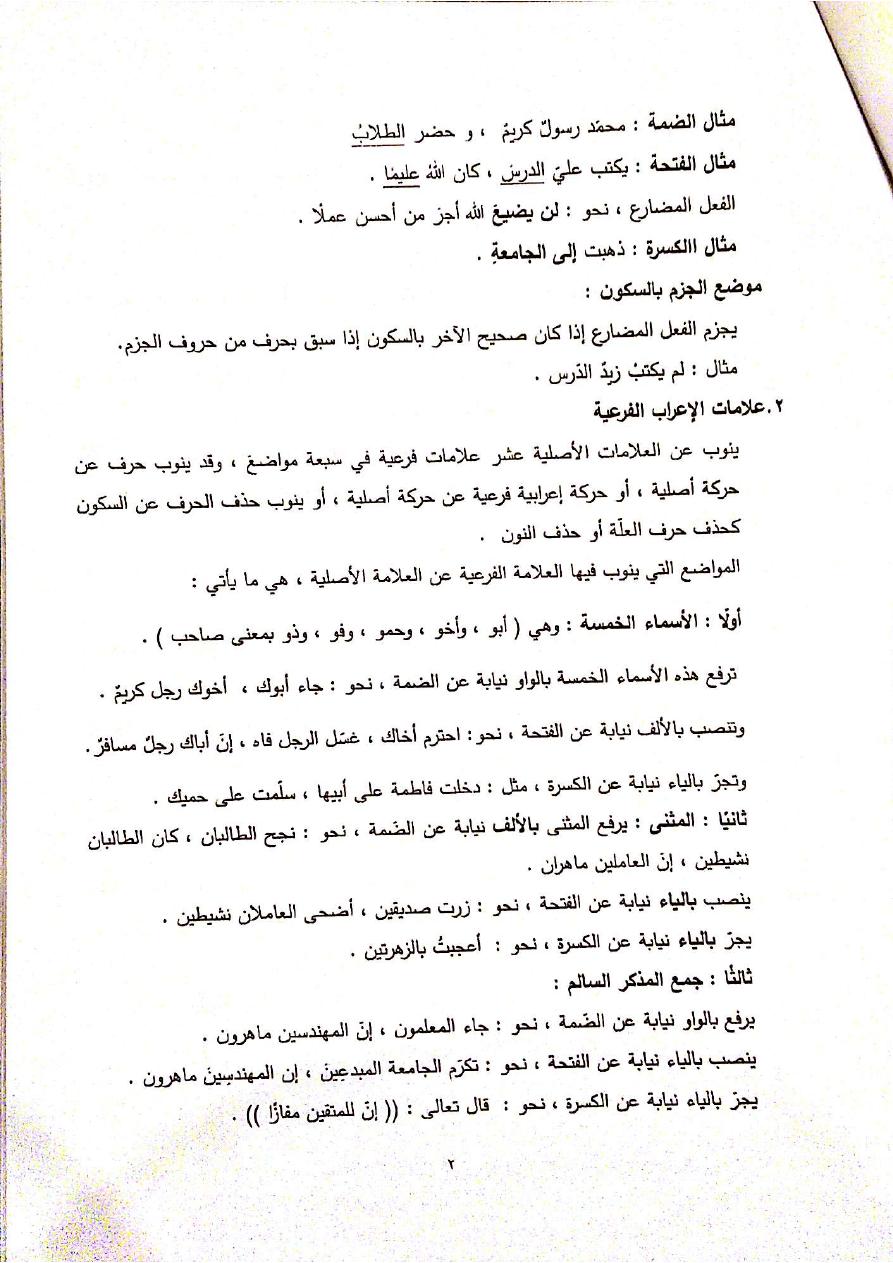 مثال الضمة : محمّد رسولٌ كريمٌ ، و حضر الطلابُ
مثال الفتحة : يكتب عليّ الدرسَ ، كان اللهُ عليمًا .
الفعل المضارع ، نحو : لن يضيعَ الله أجرَ من أحسن عملًا .
مثال االكسرة : ذهبت إلى الجامعةِ .
موضع الجزم بالسكون :
يجزم الفعل المضارع إذا كان صحيح الآخر بالسكون إذا سبق بحرف من حروف الجزم.
مثال : لم يكتبْ زيدٌ الدّرس .
٢.علامات الإعراب الفرعية
ينوب عن العلامات الأصلية عشر علامات فرعية في سبعة مواضعَ ، وقد ينوب حرف عن
حركة أصلية ، أو حركة إعرابية فرعية عن حركة أصلية ، أو ينوب حذف الحرف عن السكون
كحذف حرف العلّة أو حذف النون .
المواضع التي ينوب فيها العلامة الفرعية عن العلامة الأصلية ، هي ما يأتي :
أولًا : الأسماء الخمسة : وهي ( أبو ، وأخو ، وحمو ، وفو ، وذو بمعنى صاحب ) .
ترفع هذه الأسماء الخمسة بالواو نيابة عن الضمة ، نحو : جاء أبوك ، أخوك رجل كريمٌ .
وتنصب بالألف نيابة عن الفتحة ، نحو: احترم أخاك ، غسَل الرجل فاه ، إنّ أباك رجلٌ مسافرٌ .
وتجرّ بالياء نيابة عن الكسرة ، مثل : دخلت فاطمة على أبيها ، سلّمت على حميك .
ثانيًا : المثنى : يرفع المثنى بالألف نيابة عن الضّمة ، نحو : نجح الطالبان ، كان الطالبان
نشيطين ، إنّ العاملين ماهران .
ينصب بالياء نيابة عن الفتحة ، نحو : زرت صديقين ، أضحى العاملان نشيطين .
يجرّ بالياء نيابة عن الكسرة ، نحو : أعجبتُ بالزهرتين .
ثالثًا : جمع المذكر السالم :
يرفع بالواو نيابة عن الضّمة ، نحو : جاء المعلمون ، إنّ المهندسين ماهرون .
ينصب بالياء نيابة عن الفتحة ، نحو : تكرّم الجامعة المبدعِينَ ، إن المهندسِينَ ماهرون .
يجرّ بالياء نيابة عن الكسرة ، نحو : قال تعالى : (( إنّ للمتقين مفازًا )) .
٢